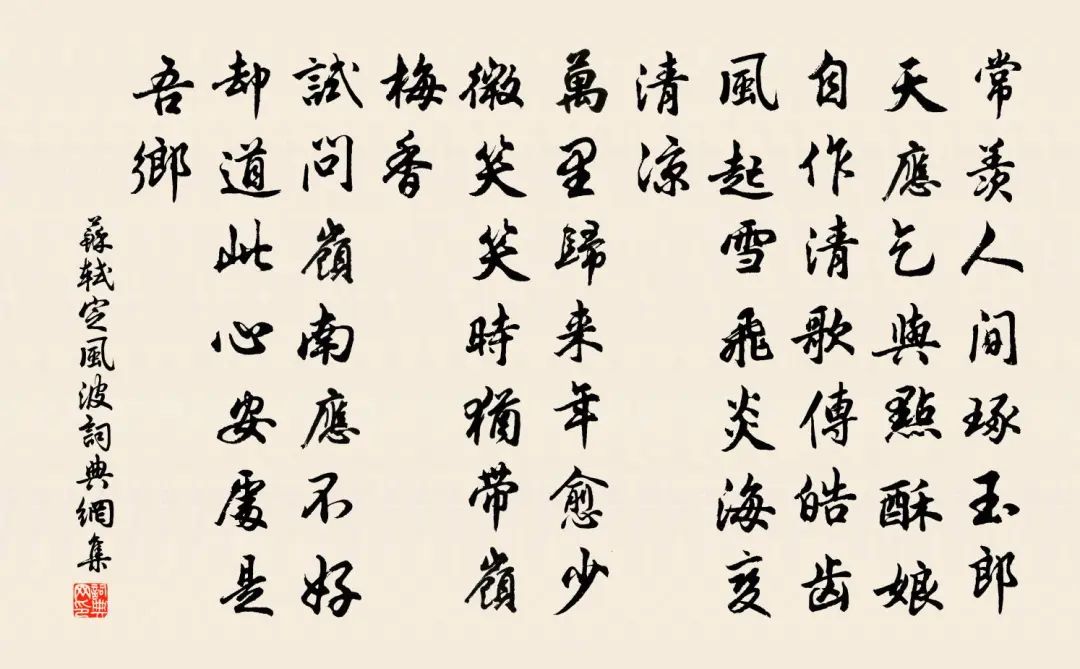 常羡人間琢玉郎
天應乞與點酥娘
自作清歌傳皓齒
風起雪飛炎海變
清涼
萬里歸来年愈少
微笑笑時猶帶嶺
梅香
試問嶺南應不好
却道此心安處是
吾鄉
蘇軾定風波詞典網集
詞典網印